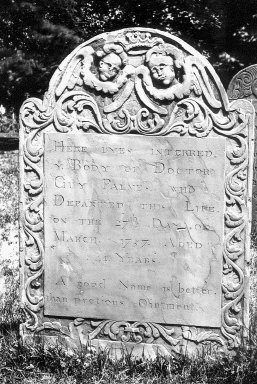 Here lyes interred
y Body of Doctor
Guy Palms who
Departed this Life
on the 27th Day of
March 1757 Aged
Years
A good Name is better
than precious Ointment